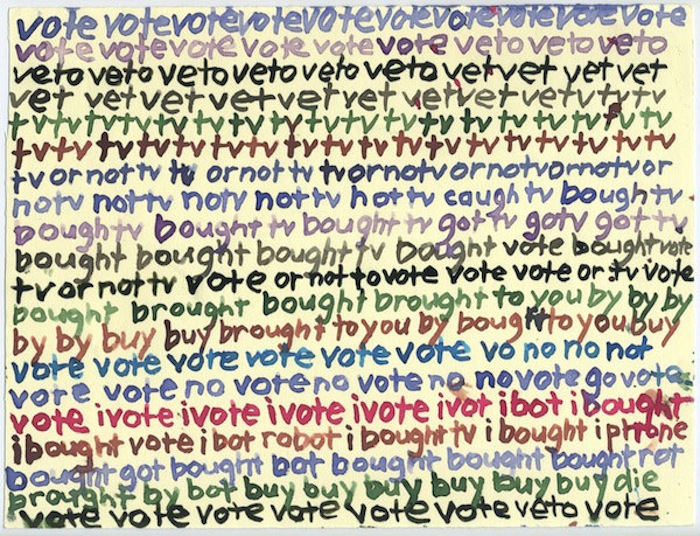 vote vote vote vote vote vote vote vote vote vote
vote vote vote vote vote vote veto veto veto
veto veto veto veto veto veto vet vet yet vet
vet vet vet vet vet vet vet vet vet tv tv tv
tv tv tv tv tv tv tv tv tv tv tv tv tv tv tv tv
tv tv tv tv tv tv tv tv tv tv tv tv tv tv tv tv
tv or not tv tv or not tv tv or not tv or not tv or not tv or
not v not v not v not tv hot tv caugh tv bough tv
bough tv bought tv bought tv got tv go tv got tv
bought bought bought tv bought vote bought vote
tv or not tv vote or not to vote vote vote or tv vote
bought brought bought brought to you by by by
by by buy buy brought to you by bought to you buy
vote vote vote vote vote vote vo no no not
vote vote no vote no vote no no vote go vote
vote ivote ivote ivote ivote ivot ibot ibought
ibought vote ibot robot i bought tv i bought iphone
bought got bought bot bought bought bought rot
brought by bot buy buy buy buy buy buy die
vote vote vote vote vote vote veto vote